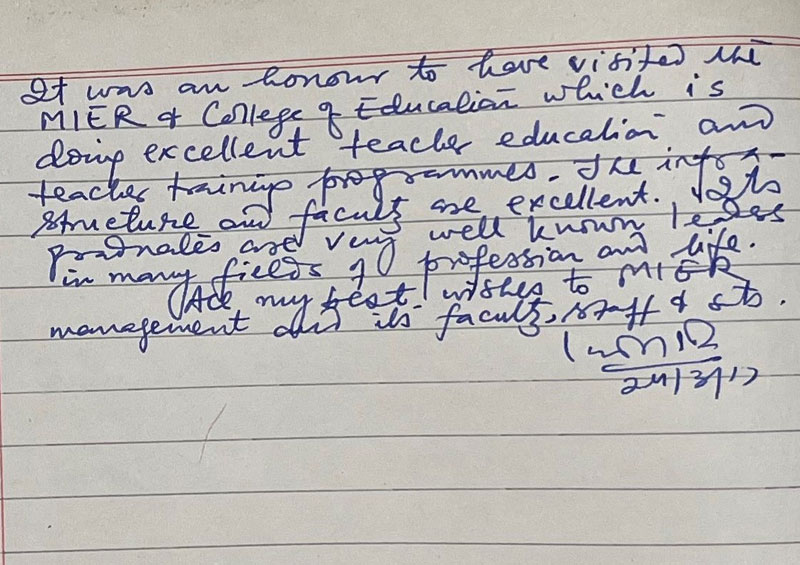 It was an honour to have visited the
MIER & College of Education which is
doing excellent teacher education and
teacher training programmes. The infra-
structure and faculty are excellent. Its
graduates are very well known leaders
in many fields of profession and life.
All my best wishes to MIER
management and its faculty, staff & sts.
24/3/17